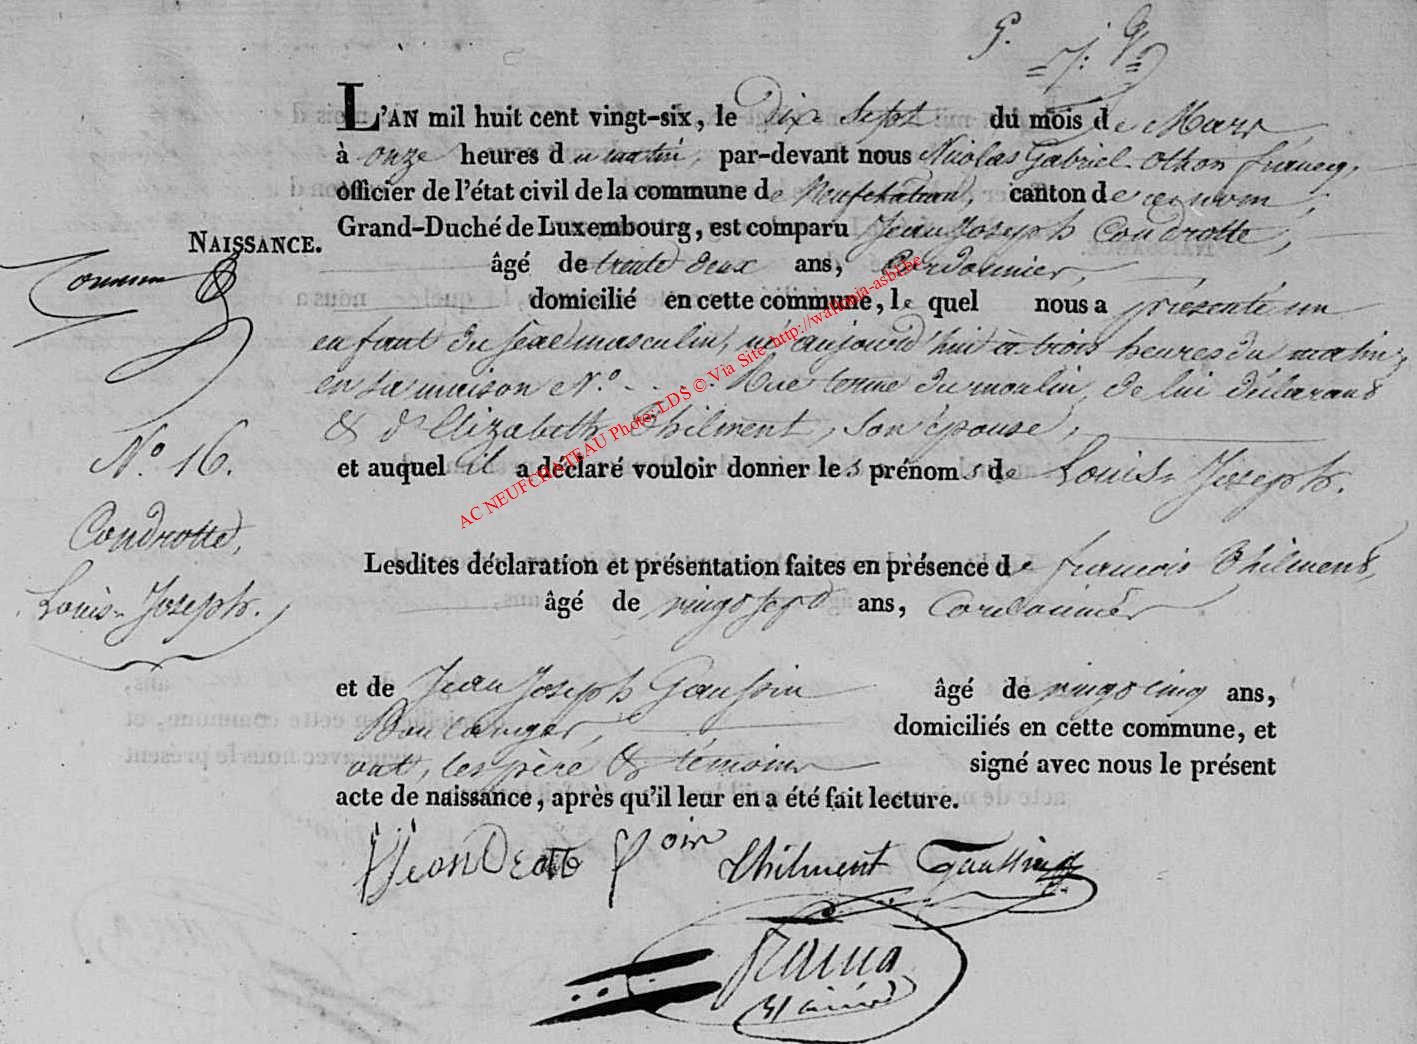 L'AN mil huit cent vingt-six, le Dix Sept du mois de Mars
à onze heures du matin, par-devant nous Nicolas Gabriel Othon francq,
officier de l'état civil de la commune de Neufchateau, canton de ce nom,
Grand-Duché de Luxembourg, est comparu Jean Joseph Condrotte,
NAISSANCE.
âgé de trente deux ans, Cordonnier,
domicilié en cette commune, le quel nous a présenté un
enfant du sexe masculin, né aujourd'hui à trois heures du matin,
en sa maison N.º . . . . Rue du moulin, de lui déclarant
& d'Elizabeth Thilment, son épouse,
et auquel il a déclaré vouloir donner les prénoms de Louis-Joseph.
N.º 16.
Condrotte,
Louis-Joseph.
Lesdites déclaration et présentation faites en présence de francois Thilment,
âgé de vingt sept ans, Cordonnier
et de Jean Joseph Gaussin âgé de vingt cinq ans,
Boulanger, domiciliés en cette commune, et
ont, les père & témoins signé avec nous le présent
acte de naissance, après qu'il leur en a été fait lecture.
Thilment Gaussin
AC NEUFCHATEAU Photo: LDS © Via Site http://wallonia-asbl.be